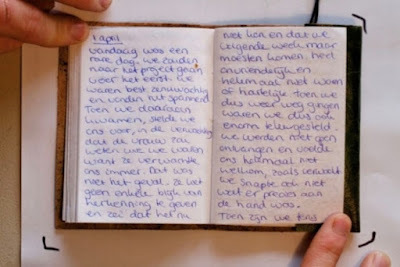 1 april
Vandaag was een
rare dag. we zouden
naar het project gaan
weer het eerst. we
waren best zenuwachtig
en vonden het spannend
Toen we daaraan
kwamen, stelde we
ons voor, in de verwachting
dat de vrouw zou
weten wie we waren
want ze verwachtte
ons immer. Dat was
niet het geval. Ze leek
geen enkele blijk van
herkenning te geven
en zei dat het nu
niet kon en dat we
volgende week maar
moesten komen. heel
onvriendelijk en
helemaal niet warm
of hartelijk. Toen we
dus weer weg gingen
waren we dus ook
enorm teleurgesteld.
we werden niet goed
ontvangen en voelde
ons helemaal niet
welkom, zoals verwacht
we snapte ook niet
wat er precies aan
de hand was.
Toen zijn we